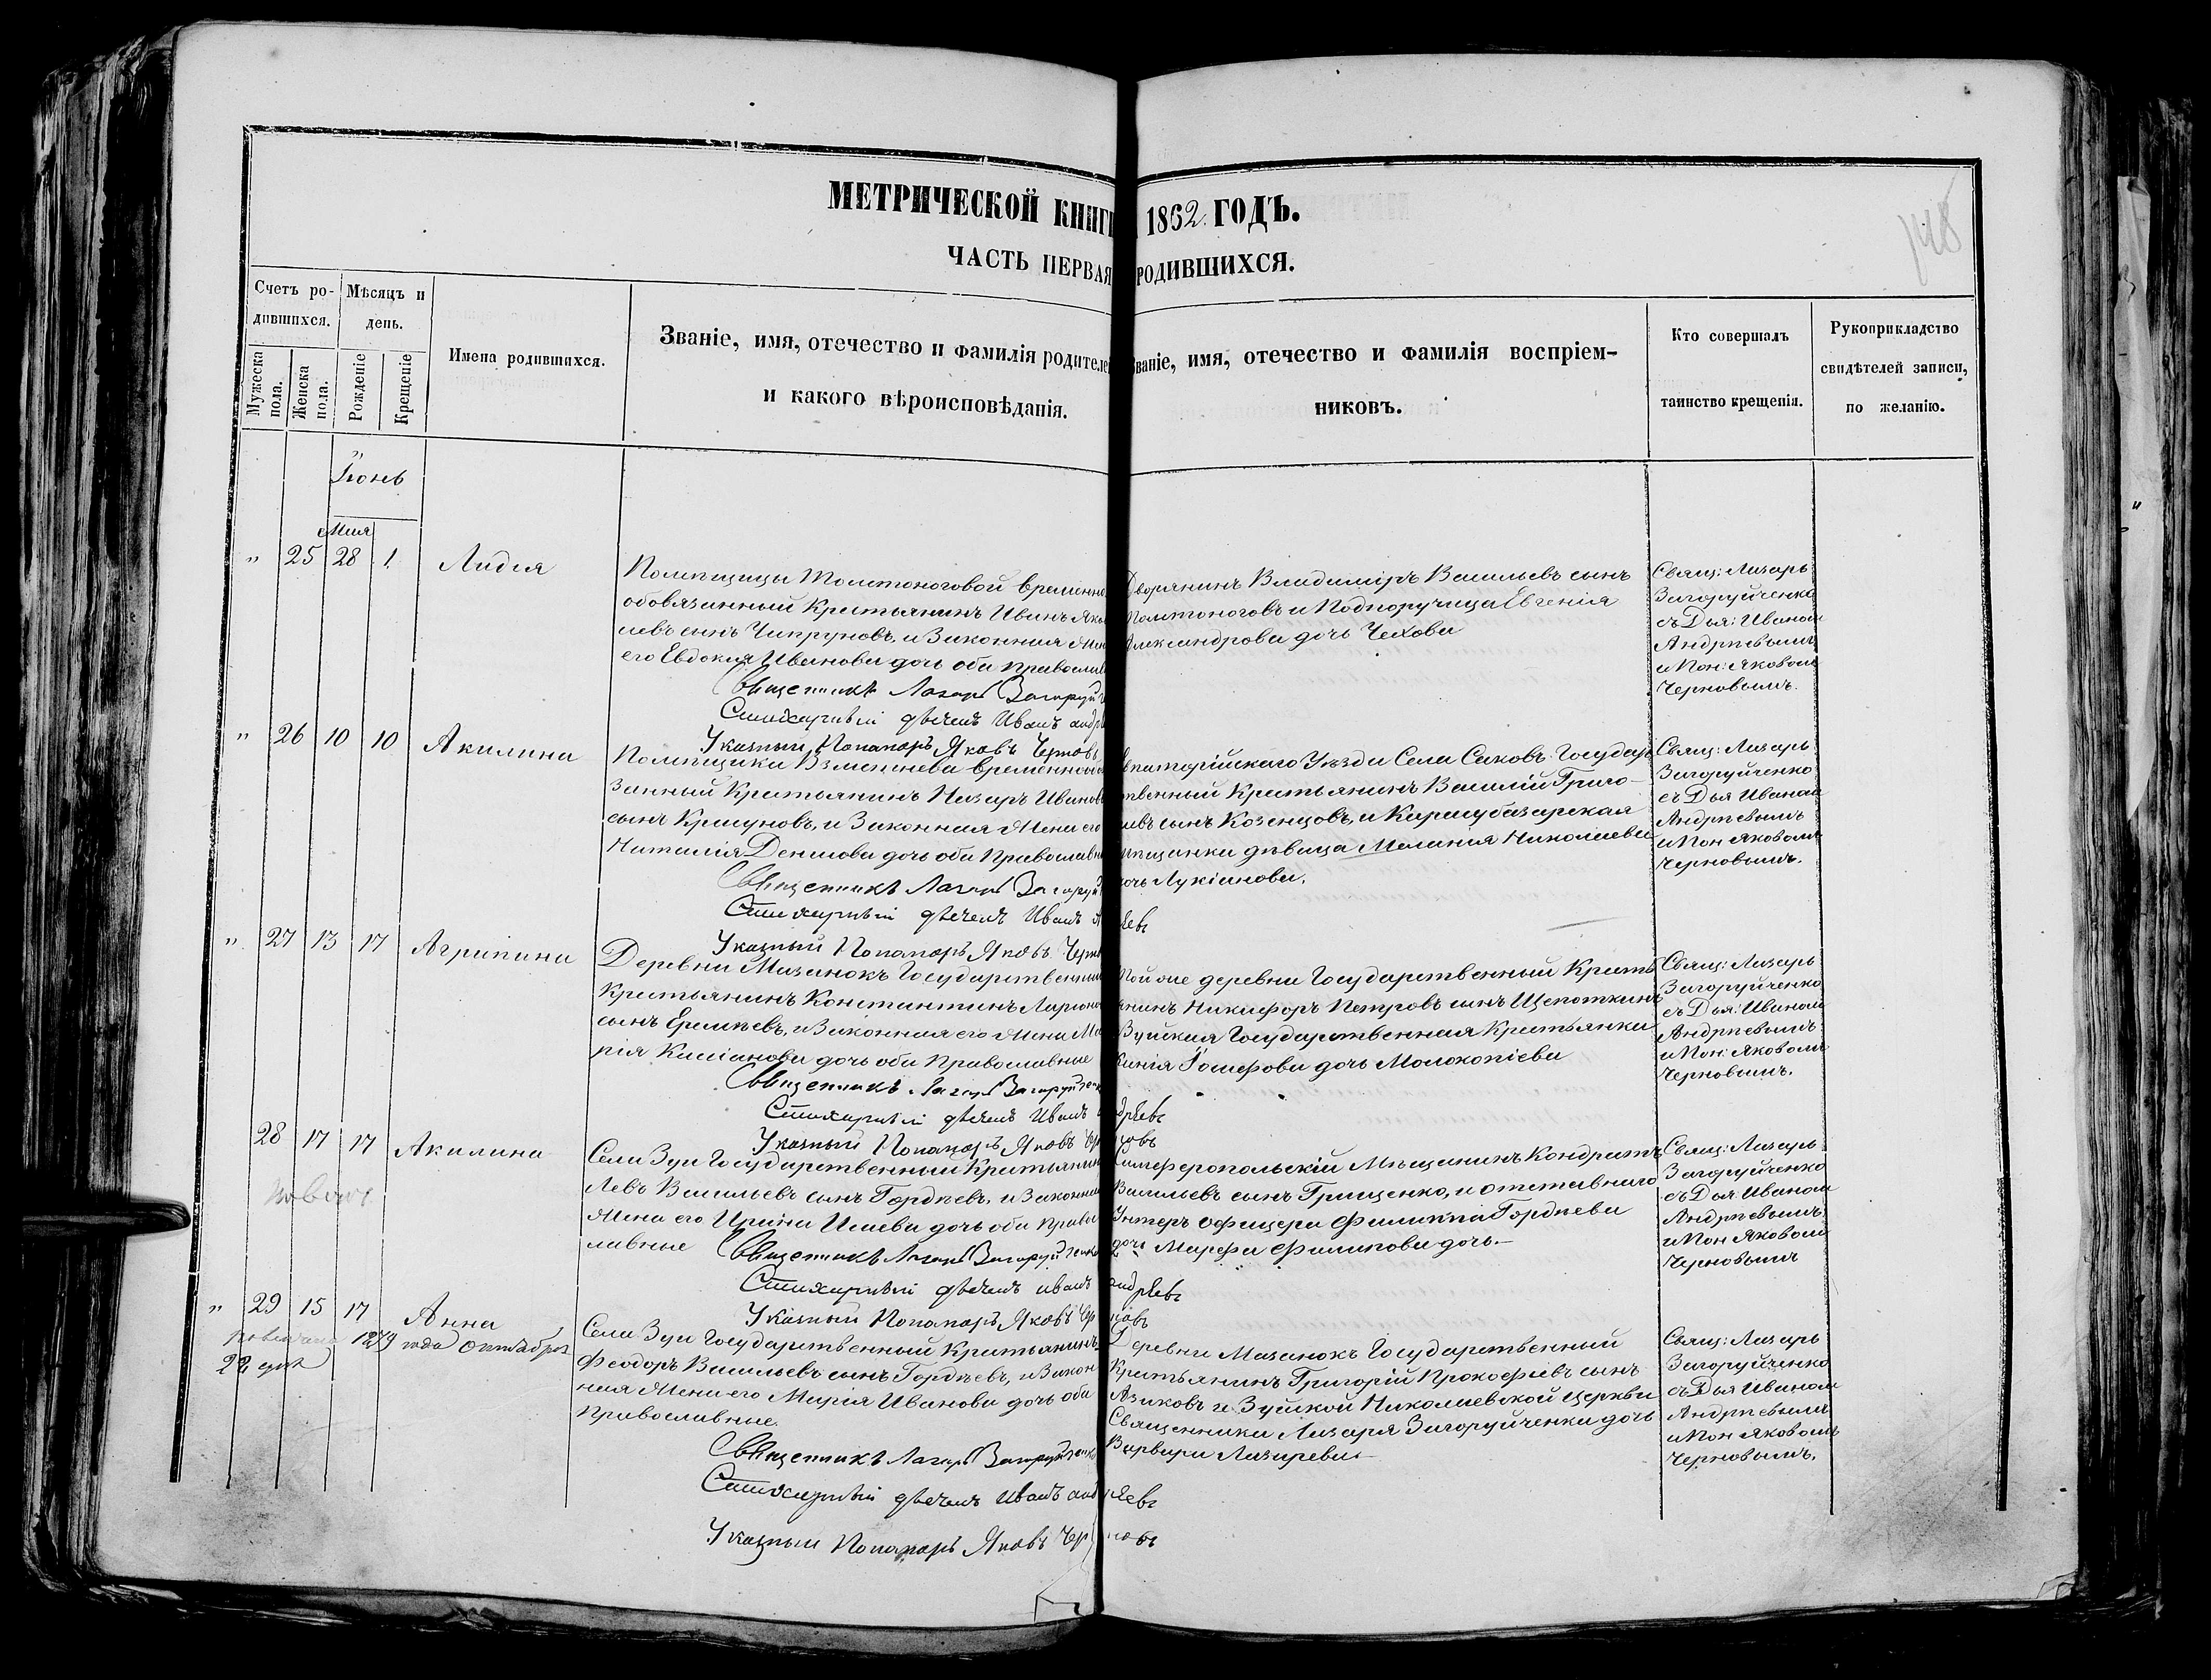 МЕТРИЧЕСКОЙ КНИГ 1862 ГОДЪ.
ЧАСТЬ ПЕРВАЯ РОДИВШИХСЯ.
148
Счетъ ро-
дившихся.
Мужеска пола.
Женска пола.
Мѣсяцъ и
день.
Рожденіе
Крещеніе
Имена родившихся.
Званіе, имя, отчество и фамилія родителе
и какого вѣроисповѣданія.
Званіе, имя, отечество и фамилія воспріем-
никовъ.
Кто совершалъ
таинство крещенія.
Рукоприкладство
свидѣтелей записи,
по желанію.
Іюнь
Мая
" 25 28 1 Лидія
Помѣщицы Толстоноговой временно
обовязанный Крестьянинъ Иванъ Яко
левъ сынъ Чипруновъ, и Законная Же
его Евдокія Иванова дочь оба православ
Священникъ Лазарь Загоруй
Стихарный дьячекъ Иванъ андр
Указный Понамарь Яковъ Черновъ
Дворянинъ Владиміръ Васильевъ сынъ
Толстоноговъ и Подпоручица Евгенія
Александрова дочь Чехова
Свящ: Лазарь
Загоруйченко
съ Дья: Иваном
Андрѣевымъ
и Пон: Яковом
Черновымъ.
" 26 10 10 Акилина
Помѣщика Взметнева временнооб
занный Крестьянинъ Назаръ Иванов
сынъ Крикуновъ, и Законная Жена его
Наталія Денисова дочь оба Православн
Священникъ Лазарь Загоруй
Стихарный дьячекъ Иванъ а
Указный Понамарь Яковъ Черн
Евпаторійскаго Уѣзда Села Саковъ Государ
твенный Крестьянинъ Василій Григо-
ьевъ сынъ Козенцовъ, и Карасубазарская
мѣщанка дѣвица Меланія Николаева
дочь Лукіанова.
ѣевъ
Свящ: Лазарь
Загоруйченко
съ Дья Иваном
Андрѣевымъ
и Пон Яковомъ
Черновымъ.
" 27 13 17 Агрипина
Деревни Мазанокъ Государственны
Крестьянинъ Константинъ Ларіоно
сынъ Ермаѣевъ, и Законная его Жена Ма
рія Касіанова дочь оба Православные
Священникъ Лазарь Загоруйченк
Стихарный дьячекъ Иванъ
Указный Понамарь Яковъ Чер
Той же деревни Государственный Кресть
янинъ Никифоръ Петровъ сынъ Щепоткинъ
Зуйская Государственная Крестьянка
Іосифова дочь Молокопіева
дрѣевъ
новъ
Свящ: Лазарь
Загоруйченко
съ Дья: Иваном
Андрѣевымъ
и Пон: Яковомъ
Черновымъ.
28 17 17 Акилина
Села Зуи Государственный Крестьянин
Левъ Васильевъ сынъ Гордѣевъ, и Законна
Жена его Ирина Исаева дочь оба Право
лавные
Священникъ Лазарь Загоруйченко
Стихарный дьячекъ иванъ
Указный Понамарь Яковъ Чер
Симферопольскій Мѣщанинъ Кондратъ
Васильевъ сынъ Грищенко, и отставнаго
Унтеръ Офицера Филиппа Гордѣева
дочь Марфа Филипова дочь.—
андрѣевъ
новъ
Свящ: Лазарь
Загоруйченко
съ Дья Иваном
Андрѣевымъ
и Пон Яковом
Черновымъ
" 29 15 17 Анна
года Октября
Села Зуи Государственный Крестьянинъ
Феодоръ Васильевъ сынъ Гордѣевъ, и Закон
ная Жена его Марія Иванова дочь оба
Православные.
Священникъ Лазарь Загоруйченко
Стихарный дьячекъ Иванъ анд
Указный Понамарь Яковъ Чер
Деревни Мазанокъ Государственный
Крестьянинъ Григорій Прокофіевъ сынъ
Азиковъ и Зуйской Николаевской Церкви
Священника Лазаря Загоруйченка дочь
Варвара Лазарева.—
рѣевъ
новъ
Свящ: Лазарь
Загоруйченко
съ Дья Иваном
Андрѣевымъ
и Пон Яковомъ
Черновымъ.